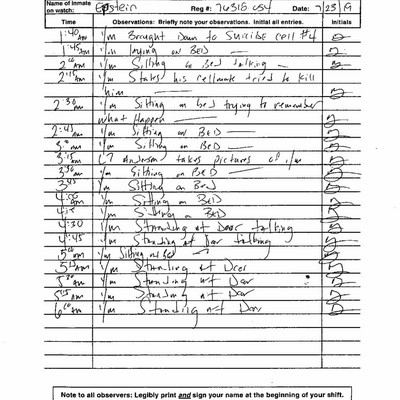 Name of Inmate on watch: Epstein Reg #: 76318 054 Date: 7/23/19
Time Observations: Briefly note your observations. Initial all entries. Initials
1:40 am I/m Brought Down to Suicide cell #4
1:45 am I/m laying on BED
2:00 am I/m Sitting on Bed talking
2:15 am I/m States his cellmate tried to kill
him
2:30 am I/m Sitting on bed trying to remember
what happen
2:45 am I/m Sitting on BED
I/m Sitting on BED
3:15 am LT Anderson takes Pictures of I/m
3:30 am I/m Sitting on BED
3:45 I/m Sitting on Bed
4:00 am I/m Sitting on BED
4:15 I/m Sitting on BED
4:30 I/m Standing at Door talking
4:45 I/m Standing at Door talking
5:00 am I/m Sitting on Bed
I/m Standing at Door
I/m Standing at Door
I/m Standing at Door
6:00 am I/m Standing at Door
Note to all observers: Legibly print and sign your name at the beginning of your shift.